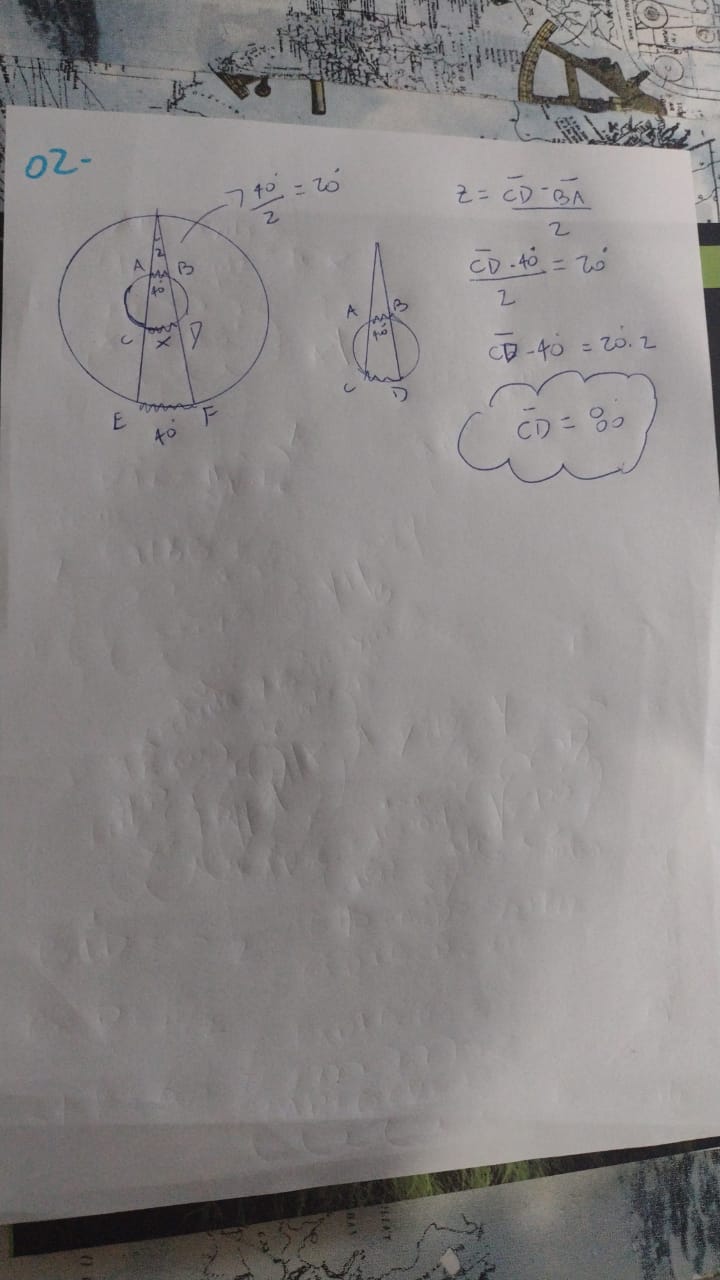 02-
40° / 2 = 20°
2
A B
40°
C X D
E F
40°
A B
40°
C D
z = CD - BA / 2
CD - 40° / 2 = 20°
CD - 40° = 20° . 2
CD = 80°